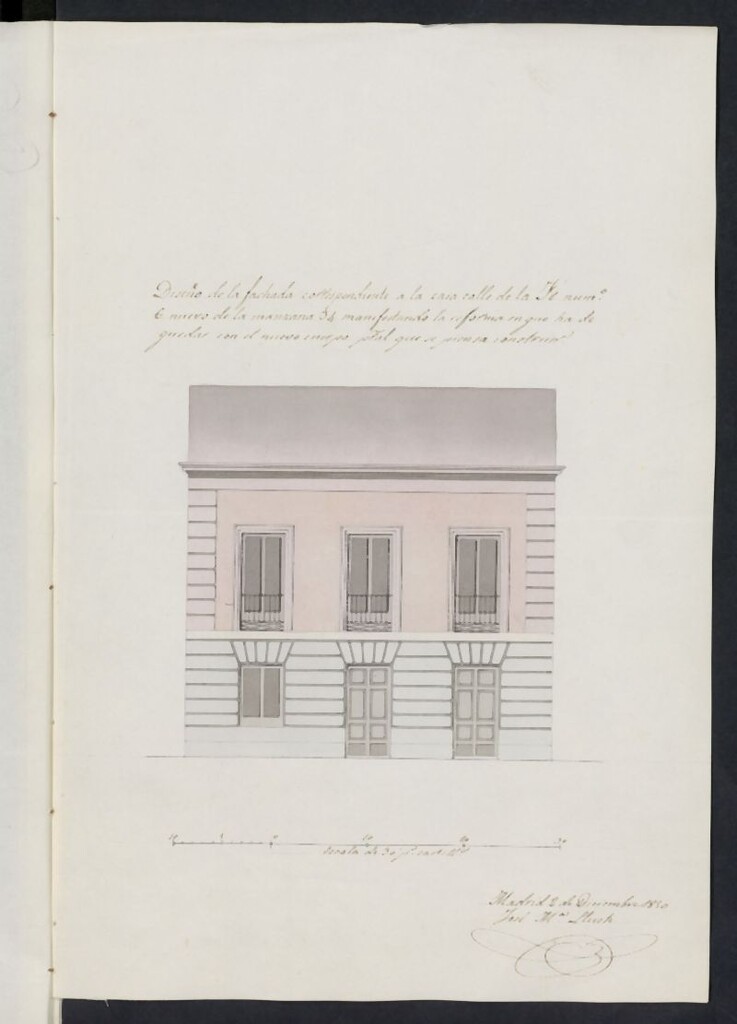 Diseño de la fachada correspondiente a la casa calle de la Fé num.º
6 nuevo de la manzana 34 manifestando la reforma en que ha de
quedar con el nuevo cuerpo pral que se piensa construir
10 5 0 10 20 30
Escala de 30 p.s cast.nos
Madrid 2 de Diciembre
José M.ª Lluch